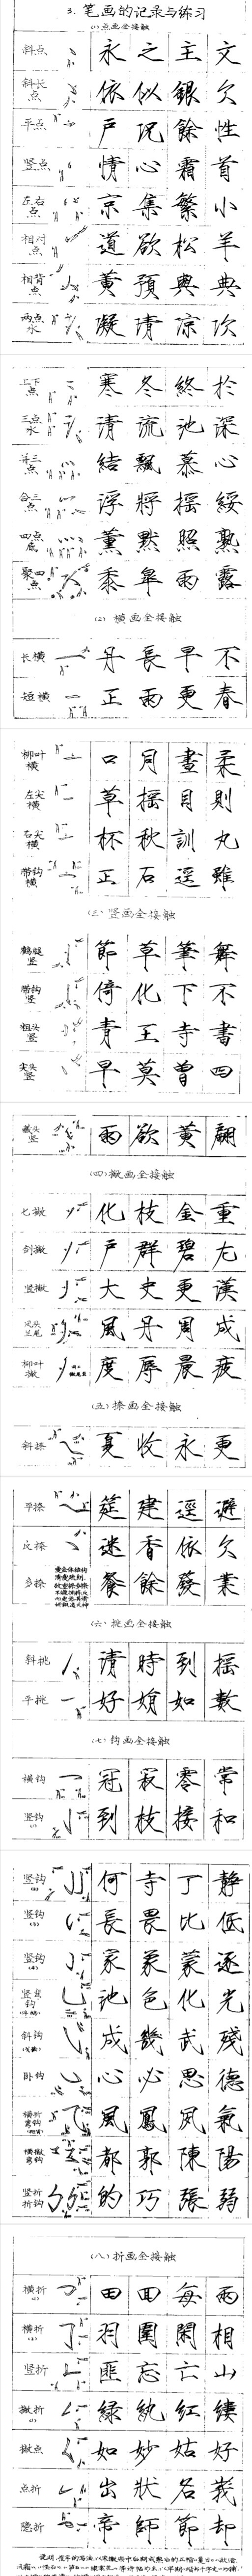 3. 笔画的记录与练习
(1) 点画全接触
斜点 永 之 主 文
斜长点 依 似 銀 欠
平点 户 况 餘 性
竖点 情 心 霜 首
左右点 京 集 繁 小
相对点 道 欲 松 羊
相背点 黄 預 典 典
两点水 凝 清 凉 次
上下点 寒 冬 終 於
三点水 清 流 池 深
并三点 結 飄 慕 心
合三点 浮 將 摇 綏
四点底 薰 默 照 熟
聚四点 黍 皐 雨 露
(2) 横画全接触
长横 丹 長 早 不
短横 正 雨 更 春
柳叶横 口 月 晝 柔
左尖横 草 摇 目 則
右尖横 杯 秋 訓 丸
带钩横 正 石 遥 雖
(三) 竖画全接触
鹤腿竖 節 草 筆 舞
带钩竖 倚 化 下 不
粗头竖 青 王 寺 書
尖头竖 早 莫 曾 四
藏头竖 雨 欲 黄 翩
(四) 撇画全接触
七撇 化 枝 金 重
剑撇 户 群 碧 尤
竖撇 大 史 更 漢
風 丹 周 成
柳叶撇 度 辱 晨 疲
(五) 捺画全接触
斜捺 夏 收 永 更
平捺 筵 建 遥 避
反捺 迷 香 依 欠
多捺 餐 餘 發 業
(六) 挑画全接触
斜挑 请 時 到 摇
平挑 好 娟 如 數
(七) 钩画全接触
横钩 冠 寂 零 常
竖钩(1) 到 枝 接 和
竖钩(2) 何 寺 丁 静
竖钩(3) 長 畏 比 低
竖钩(4) 家 象 蒙 逐
竖弯钩 池 色 化 光
斜钩 成 幾 武 殘
卧钩 心 必 思 德
横折弯钩 風 鳳 夙 氣
横撇弯钩 都 郭 陳 陽
竖折折钩 的 巧 張 弱
(八) 折画全接触
横折(1) 田 回 每 兩
横折(2) 羽 圍 閑 相
竖折 匪 忘 亡 山
撇折 绿 紈 紅 續
撇点 如 妙 姑 好
点折 出 狀 名 我
隐折 帝 師 節 却